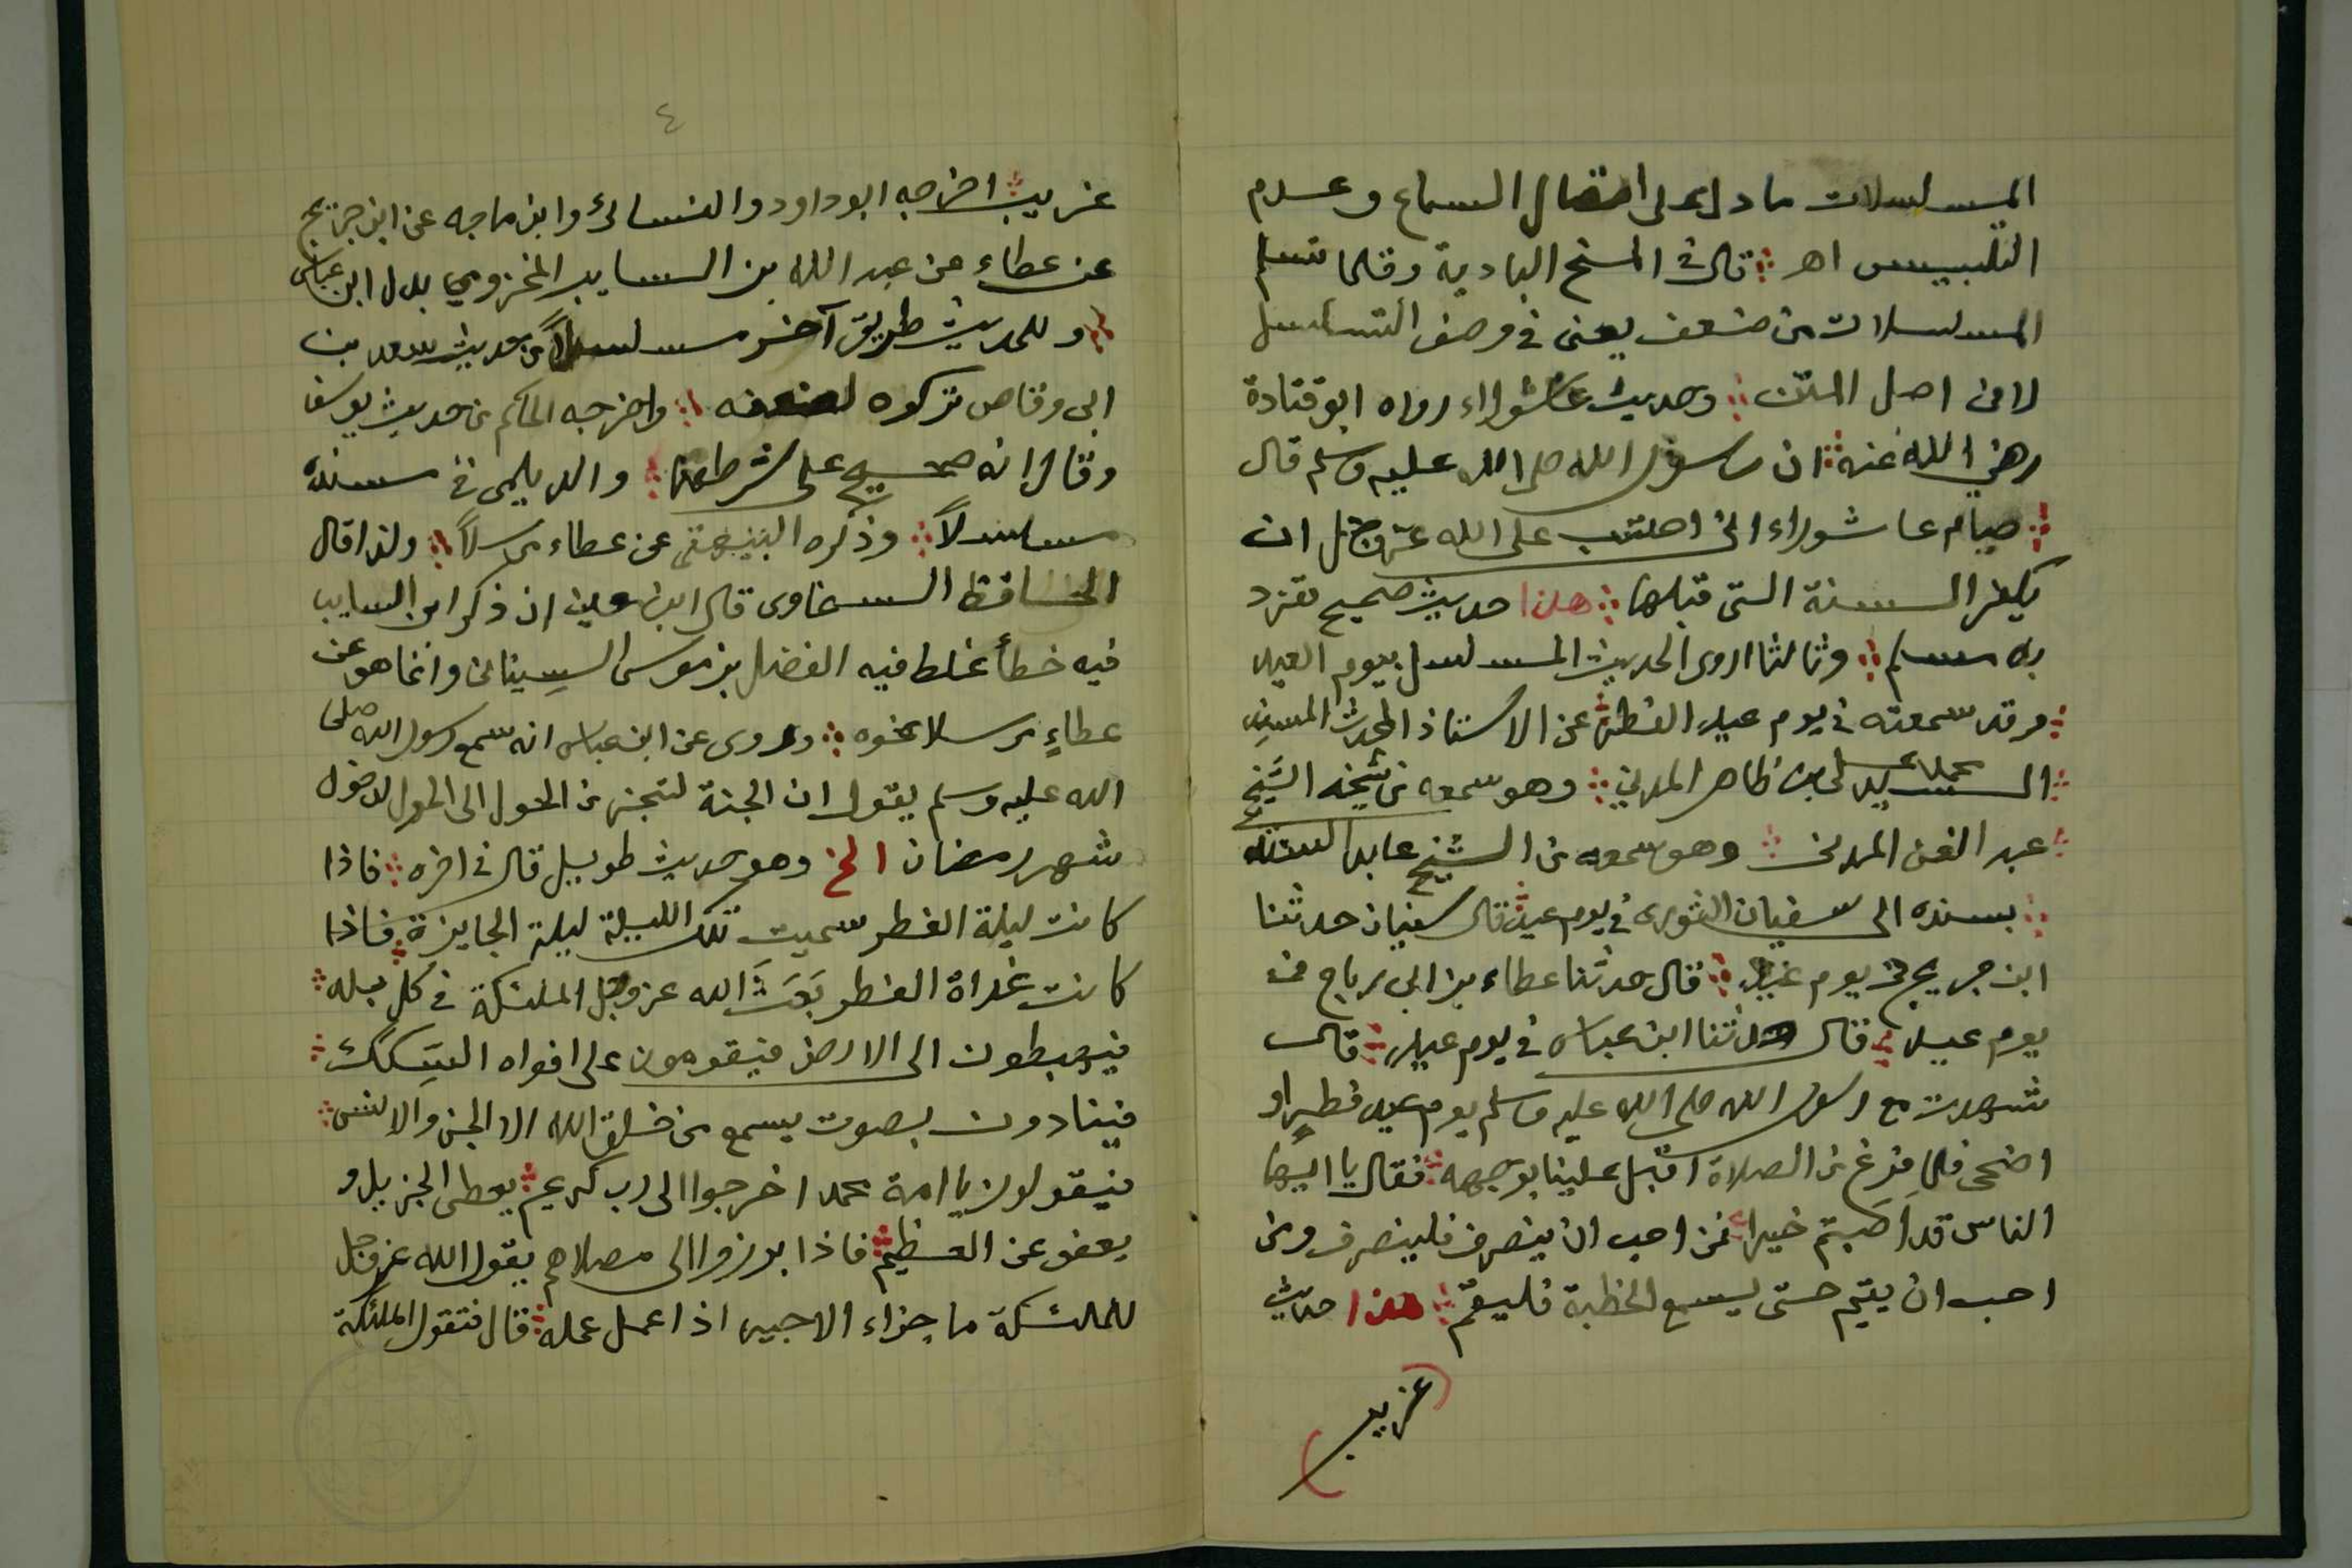 المسلسلات ما دل على اتصال السماع وعدم
التلبيس اهـ قال في المنح البادية وقلما تسلم
المسلسلات من ضعف يعني في وصف التسلسل
لا في اصل المتن وحديث عاشوراء رواه ابو قتادة
رضي الله عنه ان رسول الله صلى الله عليه وسلم قال
صيام عاشوراء اني احتسب على الله عز وجل ان
يكفر السنة التي قبلها هذا حديث صحيح تفرد
به مسلم وثالثا اروى الحديث المسلسل بيوم العيد
وقد سمعته في يوم عيد الفطر عن الاستاذ المحدث المسند
السيد محمد علي بن ظاهر المدني وهو سمعه من شيخه الشيخ
عبد الغني المدني وهو سمعه من الشيخ عابد السندي
بسنده الى سفيان الثورى في يوم عيد قال سفيان حدثنا
ابن جريج في يوم عيد قال حدثنا عطاء بن ابي رباح في
يوم عيد قال حدثنا ابن عباس في يوم عيد قال
شهدت مع رسول الله صلى الله عليه وسلم يوم عيد فطر او
اضحى فلما فرغ من الصلاة اقبل علينا بوجهه فقال يا ايها
الناس قد اصبتم خيرا فمن احب ان ينصرف فلينصرف ومن
احب ان يقيم حتى يسمع الخطبة فليقم هذا حديث
غريب
٤
غريب اخرجه ابو داود والنسائي وابن ماجه عن ابن جريج
عن عطاء عن عبد الله بن السايب المخزومي بدل ابن عباس
وللحديث طريق آخر مسلسلاً من حديث سعد بن
ابى وقاص تركوه لضعفه واخرجه الحاكم من حديث يوسف
وقال انه صحيح على شرطهما والديلمى في مسنده
مسلسلاً وذكره البيهقى عن عطاء مرسلاً ولذا قال
الحافظ السخاوى قال ابن معين ان ذكر ابن السايب
فيه خطأ غلط فيه الفضل بن موسى السيناني وانما هو عن
عطاءٍ مرسلا نحوه وروى عن ابن عباس انه سمع رسول الله صلى
الله عليه وسلم يقول ان الجنة لتجز من الحول الى الحول لدخول
شهر رمضان الخ وهو حديث طويل قال في اخره فاذا
كانت ليلة الفطر سميت تلك الليلة ليلة الجايزة فاذا
كانت غداة الفطر بَعَثَ الله عز وجل الملئكة في كل بلد
فيهبطون الى الارض فيقومون على افواه السكك
فينادون بصوت يسمع من خلق الله الا الجن والانس
فيقولون يا امة محمد اخرجوا الى رب كريم يعطى الجزيل و
يعفو عن العظيم فاذا برزوا الى مصلاهم يقول الله عز وجل
للملئكة ما جزاء الاجير اذا عمل عمله قال فتقول الملئكة